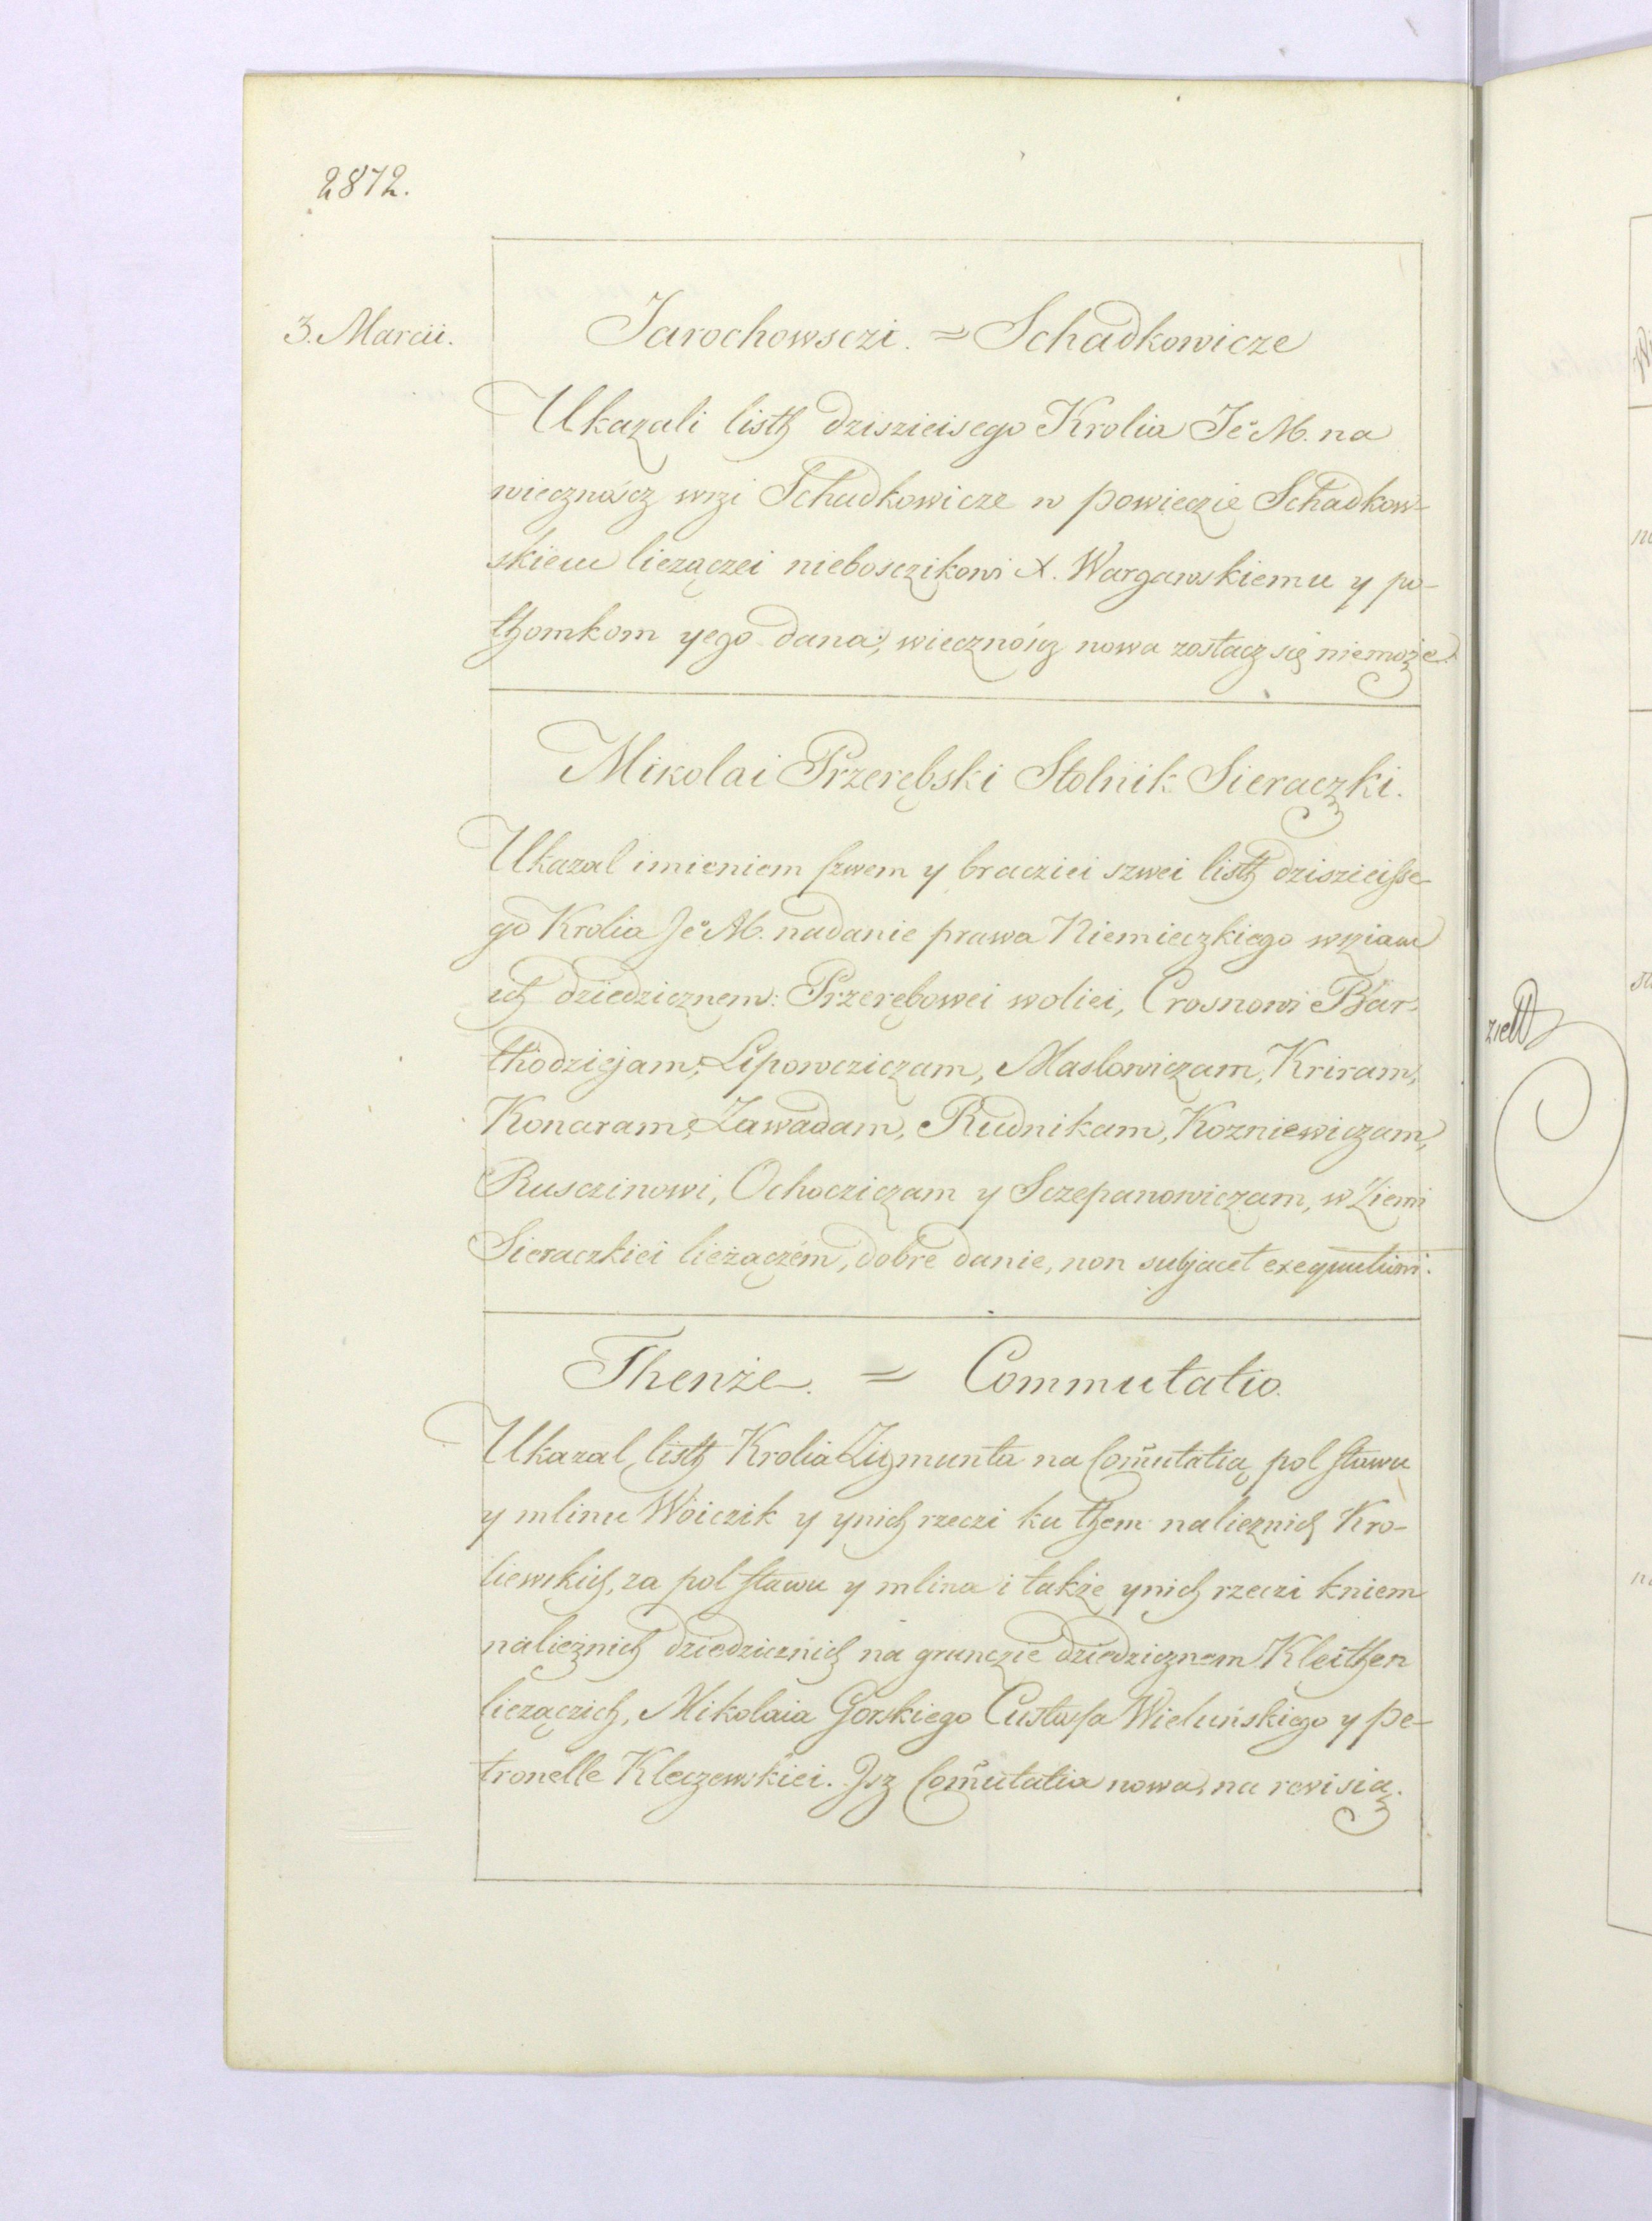 2872.
3. Marcii.
Jarochowsczi. = Schadkowicze
Ukazali listh dziszieisego Krolia Je° M. na
wiecznoscz wszi Schadkowicze w powieczie Schadkow-
skiem liezączei nieboszczikowi X. Wargawskiemu y po-
thomkom yego dana, wiecznoscz nowa zostacz się niemoże.
Mikolai Przerębski Stolnik Sieraczki.
Ukazal imieniem szwem y bracziei szwei listh dziszieisse-
go Krolia Je° M. nadanie prawa Niemieczkiego wsziam
ich dziedzicznem: Przerębowei woliei, Crosnowi Bar-
thodziejam, Lipowcziczam, Maslowiczam, Kriram,
Konaram, Zawadam, Rudnikam, Kozniewiczam,
Rusczinowi, Ochocziczam y Sczepanowiczam, w Ziemi
Sieraczkiei lieżączém, dobre danie, non subjacet exequutioni.
Thenże. = Commutatio.
Ukazal listh Krolia Zigmunta na Com̃utatią pol stawu
y mlinu Woiczik y ynich rzeczi ku them nalieznich Kro-
liewskich, za pol stawu y mlina i także ynich rzeczi kniem
należnich dziedzicznich na grunczie dziedzicznem Kleithen
liezączich, Mikolaia Gorskiego Custosza Wieluńskiego y pe-
tronelle Kleczewskiei. Jsz Com̃utatia nowa, na rewisią.
zielt